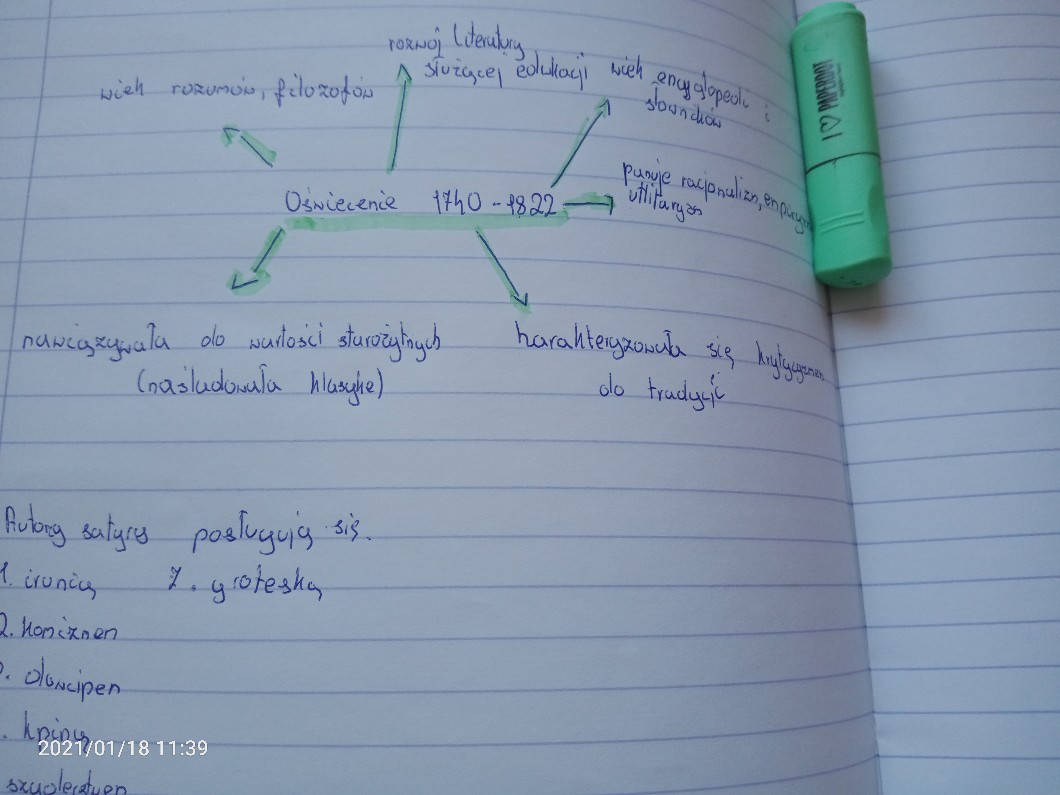 rozwój literatury
służącej edukacji
wiek rozumów, filozofów
wiek encyglopedi i
słowników
Oświecenie 1740 - 1822
panuje racjonalizm,
utlitaryzm
nawiązywała do wartości starożytnych
(naśladowała klasykę)
harakteryzowała się krytycyzmem
do tradycji
Autorzy satyry posługują się.
1. ironią 7. groteską
2. komizmem
dowcipem
kpiną
2021/01/18 11:39